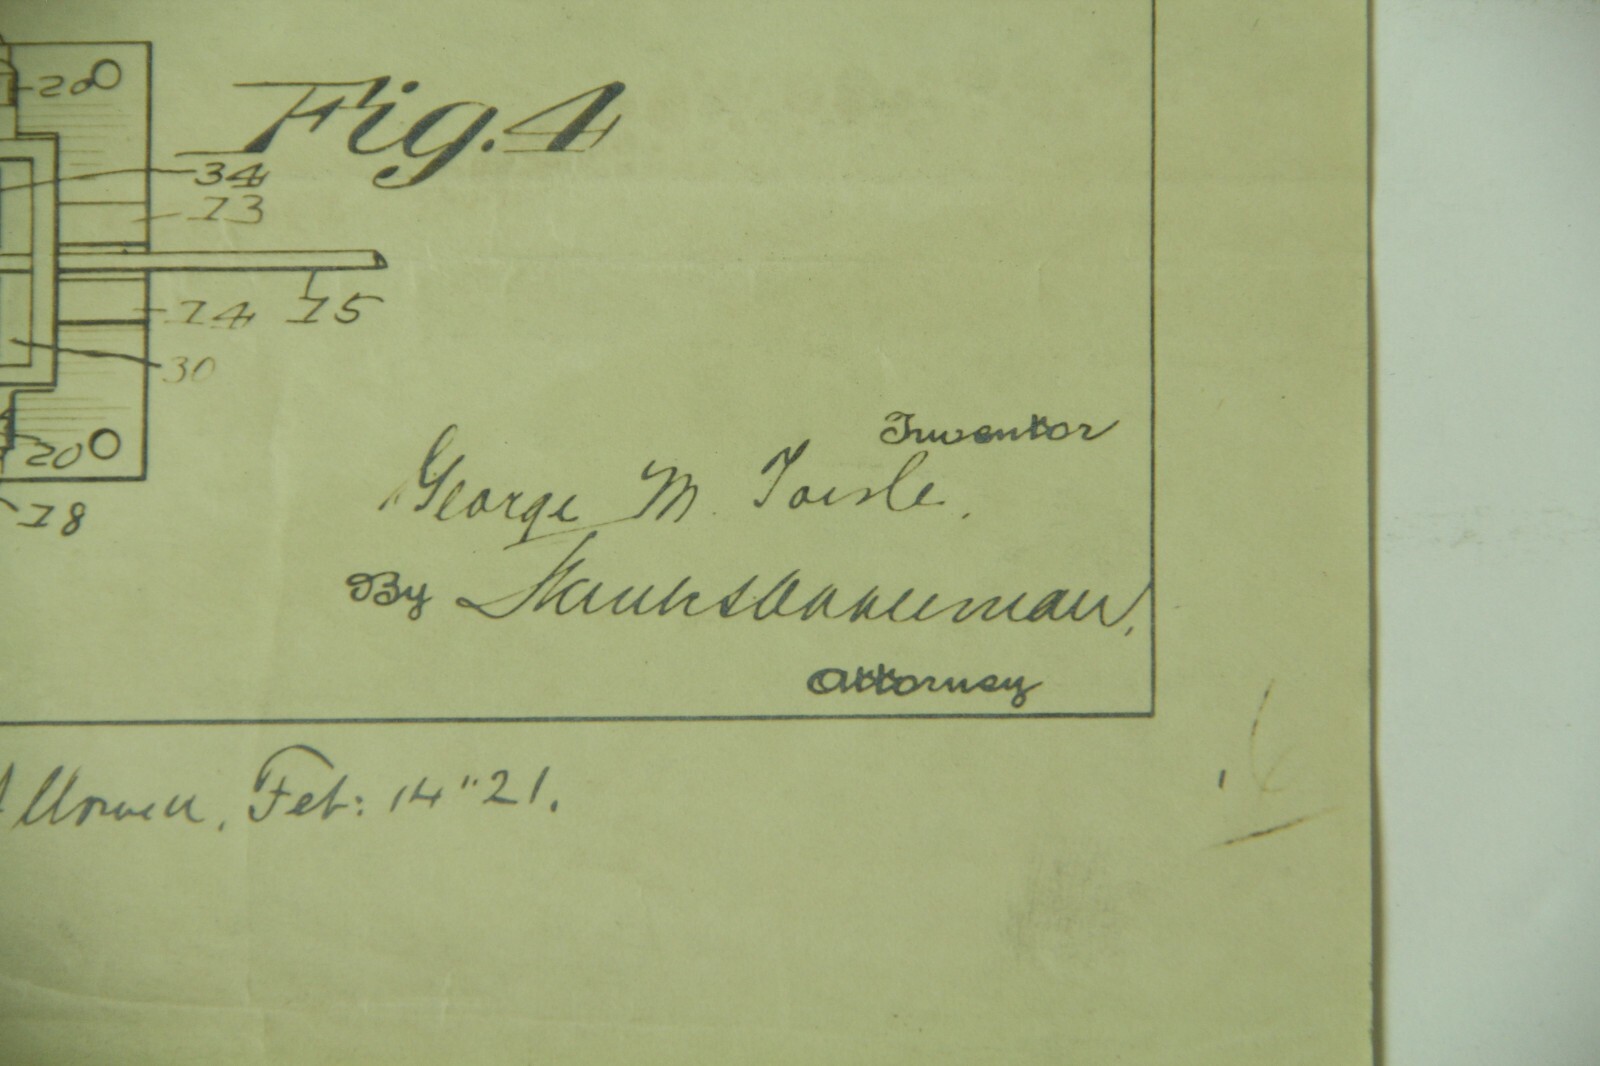 20
Fig. 4
34
13
15
14
30
Inventor
George M.
20
18
By
Attorney
Feb: 14" 21.